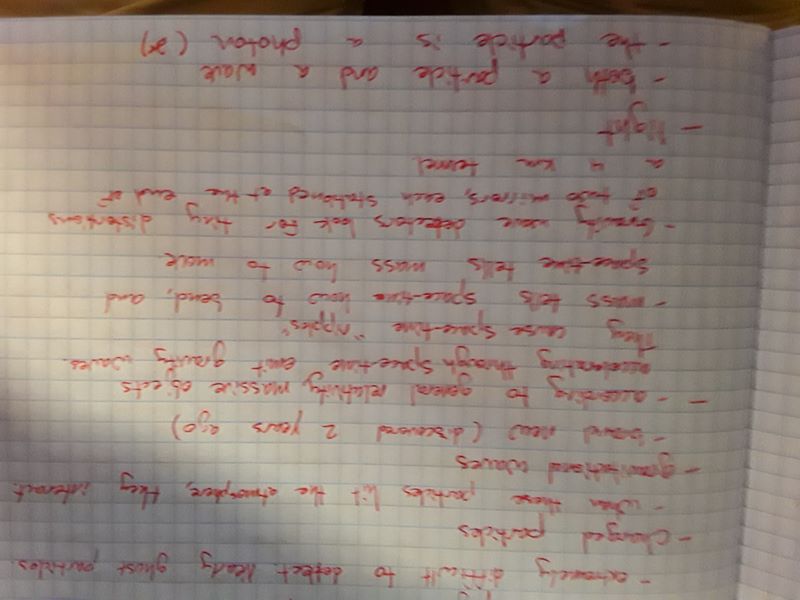 - extremely difficult to detect. Nearly ghost particles.
- Charged particles
- when these particles hit the atmosphere, they interact
- gravitational waves
- brand new (discovered 2 years ago)
- according to general relativity, massive objects
accelerating through space-time emit gravity waves.
They cause space-time "ripples"
- mass tells space-time how to bend, and
space-time tells mass how to move
- Gravity wave detectors look for tiny distortions
of two mirrors, each stationed at the end of
a 4 km tunnel
- light
- both a particle and a wave
- the particle is a photon (γ)